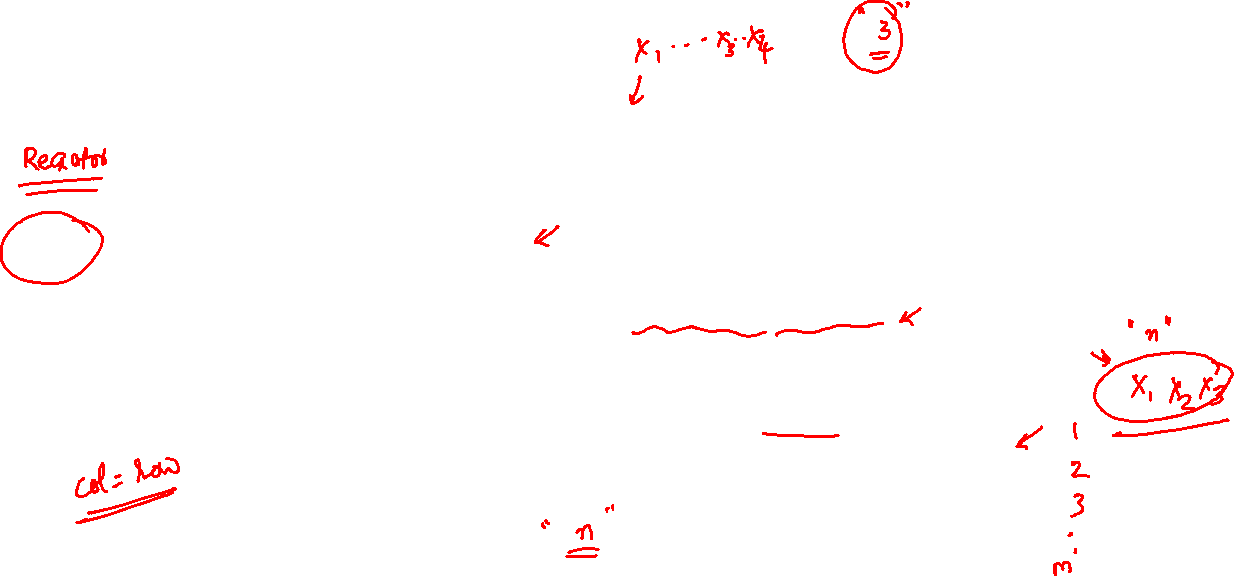 X₁ ... X₃ .. X₄ "3"
Reactor
"n"
X₁ X₂ X₃
1
2
3
:
m
col = row
"n"